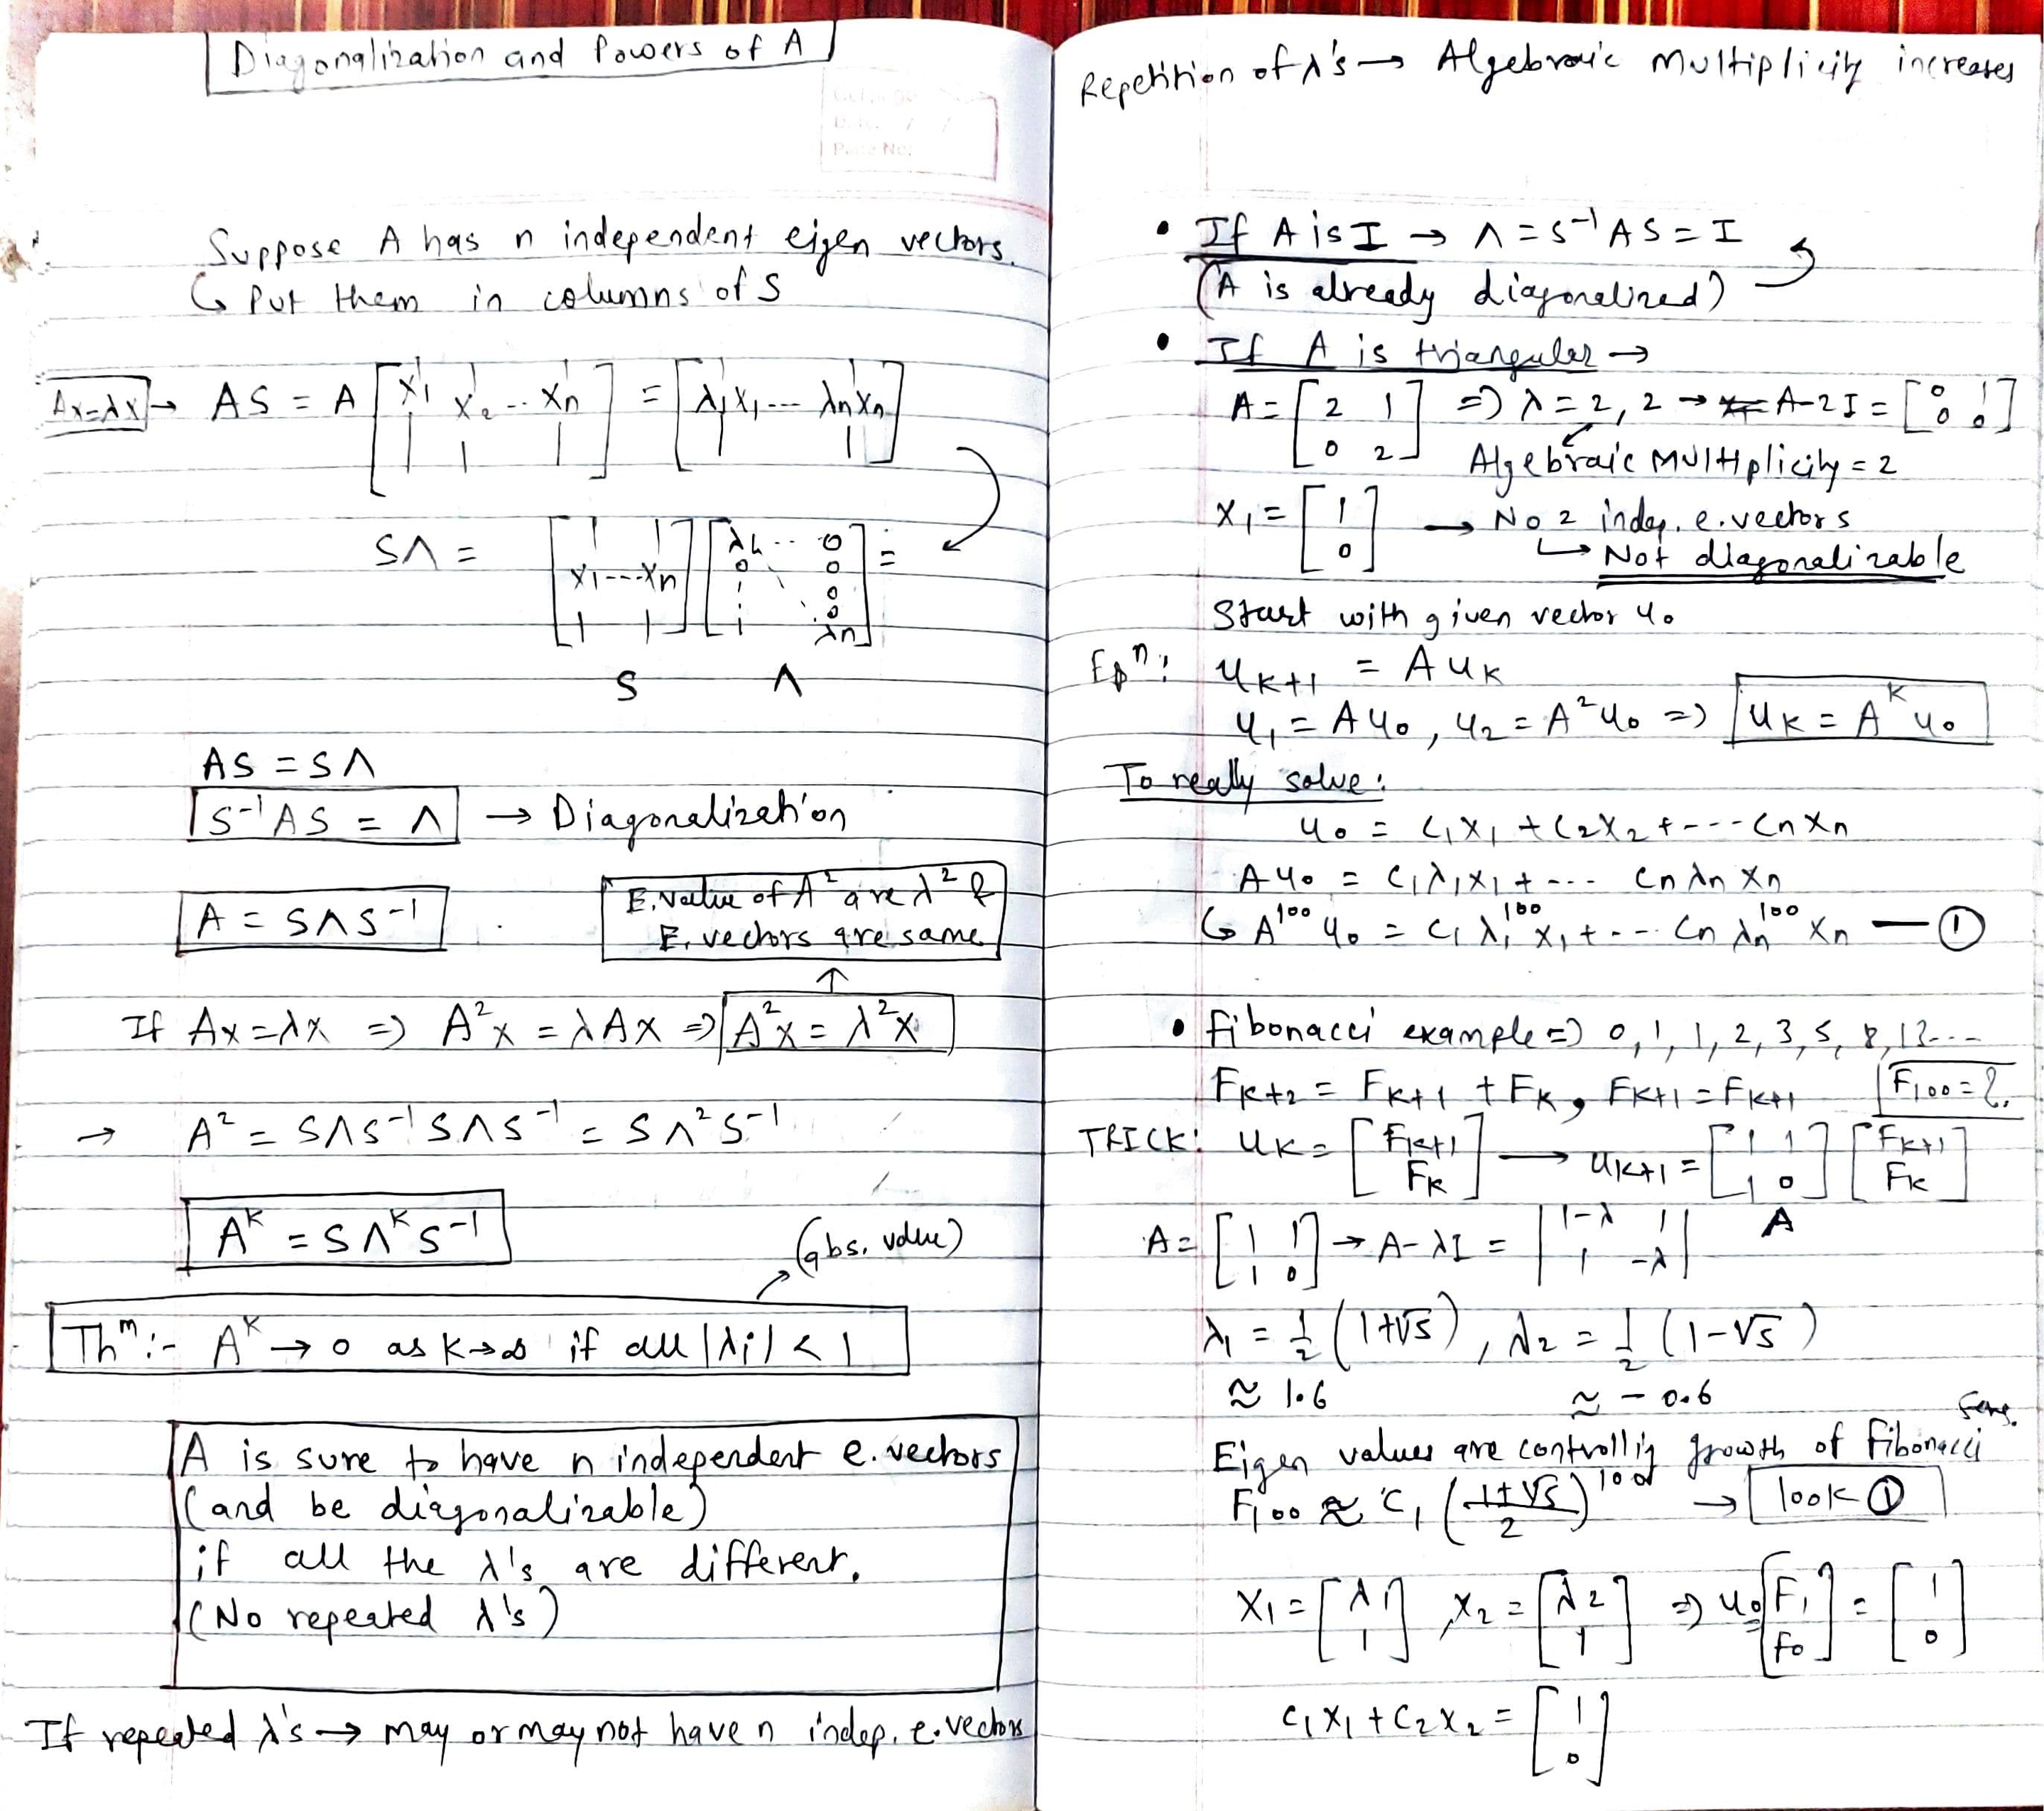 Diagonalization and Powers of A
Page No:
Suppose A has n independent eigen vectors.
↳ Put them in columns of S
Ax=λx → AS = A [x1 x2 -- xn] = [λ1x1 --- λnxn]
SΛ = [x1 --- xn] [λ1 .. 0 0 0 0 0 λn] =
S Λ
AS = SΛ
S⁻¹AS = Λ → Diagonalization
A = SΛS⁻¹
E. Value of A² are λ² &
E. vectors are same
If Ax=λx => A²x = λAx => A²x = λ²x
→ A² = SΛS⁻¹SΛS⁻¹ = SΛ²S⁻¹
A^K = SΛ^K S⁻¹
(abs. value)
Thᵐ :- A^K → 0 as K→∞ if all |λi| < 1
A is sure to have n independent e. vectors
(and be diagonalizable)
if all the λ's are different.
(No repeated λ's)
If repeated λ's → may or may not have n indep. e. vectors
Repetition of λ's → Algebraic Multiplicity increases
• If A is I → Λ = S⁻¹AS = I
(A is already diagonalized)
• If A is triangular →
A = [2 1 0 2] => λ = 2, 2 → A-2I = [0 1 0 0]
Algebraic Multiplicity = 2
x1 = [1 0] → No 2 indep. e. vectors
↳ Not diagonalizable
Start with given vector u0
Eqⁿ: uK+1 = A uK
u1 = Au0, u2 = A²u0 => uK = A^K u0
To really solve:
u0 = c1x1 + c2x2 + --- cnxn
Au0 = c1λ1x1 + --- cnλnxn
↳ A¹⁰⁰u0 = c1λ1¹⁰⁰x1 + --- cnλn¹⁰⁰xn — ①
• Fibonacci example => 0, 1, 1, 2, 3, 5, 8, 13---
FK+2 = FK+1 + FK, FK+1 = FK+1 F100 = ?
TRICK: uK = [FK+1 FK] → uK+1 = [1 1 1 0] [FK+1 FK]
A
A = [1 1 1 0] → A-λI = |1-λ 1 1 -λ|
λ1 = 1/2 (1+√5), λ2 = 1/2 (1-√5)
≈ 1.6 ≈ -0.6
Eigen values are controllig growth of Fibonacci
F100 ≈ c1 ((1+√5)/2)¹⁰⁰ → look ①
x1 = [λ1 1], x2 = [λ2 1] => u0 = [F1 F0] = [1 0]
c1x1 + c2x2 = [1 0]